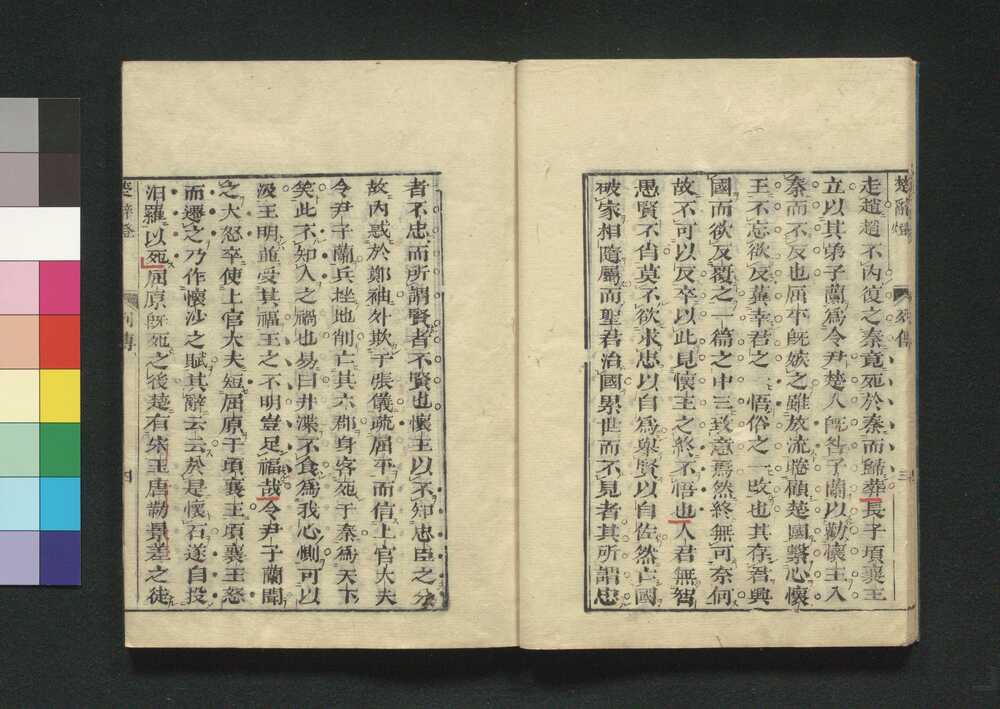 楚辭燈 列傳 三
走趙趙不內復之秦竟死於秦而歸葬長子頃襄王
立以其弟子蘭爲令尹楚人旣咎子蘭以勸懷王入
秦而不反也屈平旣嫉之雖放流睠顧楚國繫心懷
王不忘欲反冀幸君之一悟俗之一改也其存君興
國而欲反覆之一篇之中三致意焉然終無可奈何
故不可以反卒以此見懷王之終不悟也人君無智
愚賢不肖莫不欲求忠以自爲舉賢以自佐然亡國
破家相隨屬而聖君治國累世而不見者其所謂忠
者不忠而所謂賢者不賢也懷王以不知忠臣之分
故內惑於鄭袖外欺于張儀疏屈平而信上官大夫
令尹子蘭兵挫地削亡其六郡身客死于秦爲天下
笑此不知人之禍也易曰井渫不食爲我心惻可以
汲王明竝受其福王之不明豈足福哉令尹子蘭聞
之大怒卒使上官大夫短屈原于頃襄王頃襄王怒
而遷之乃作懷沙之賦其辭云云於是懷石遂自投
汨羅以死屈原旣死之後楚有宋玉唐勒景差之徒
楚辭燈 列傳 四